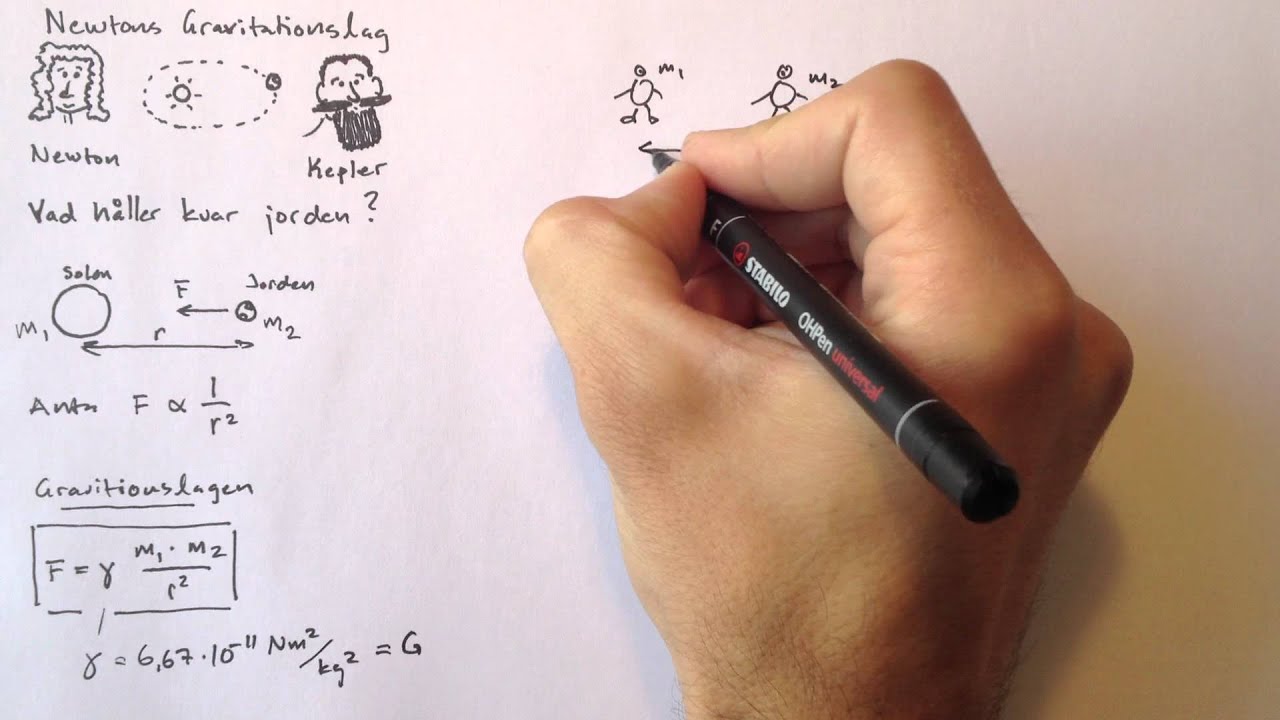 Newtons Gravitationslag
Newton
Kepler
Vad håller kvar jorden?
Solen
F
Jorden
m₁
r
m₂
Anta F ∝ 1/r²
Gravitiouslagen
F = γ m₁·m₂/r²
γ = 6,67·10⁻¹¹ Nm²/kg² = G
m₁
m₂
F
STABILO OHPen universal